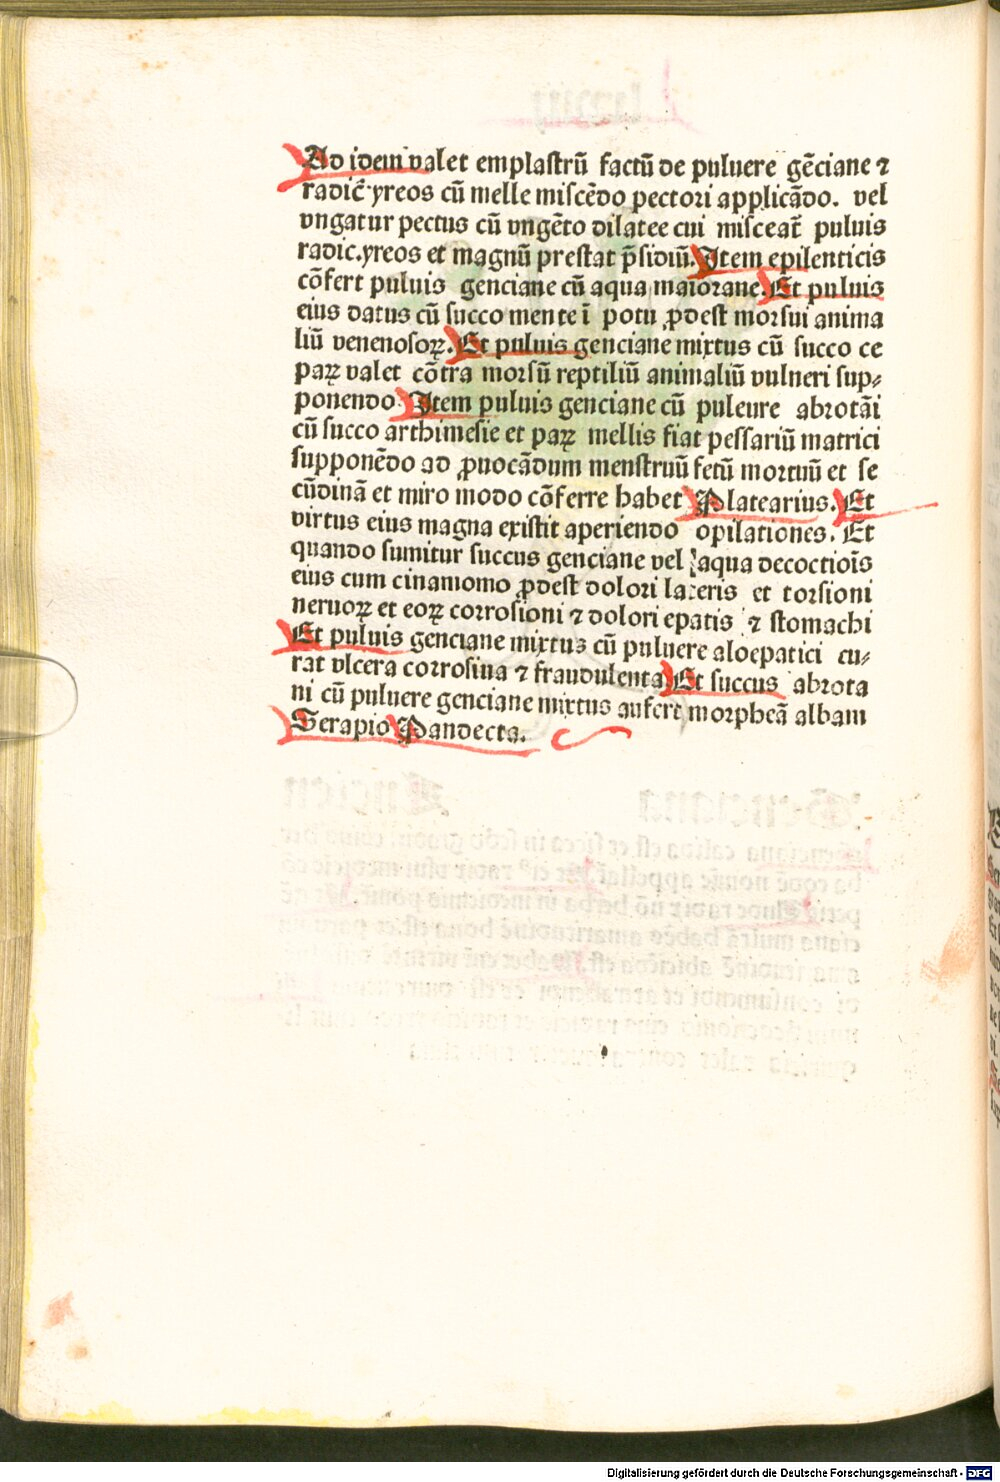 Ad idem valet emplastrū factū de puluere gēciane ⁊
radic̄ yreos cū melle miscēdo pectori applicādo. vel
vngatur pectus cū vngēto dilatee cui misceat̄ puluis
radic. yreos et magnū prestat p̄sidiū. Item epilenticis
cōfert puluis genciane cū aqua maiorane. Et puluis
eius datus cū succo mente ī potu ꝓdest morsui anima
liū venenosoꝝ. Et puluis genciane mixtus cū succo ce
paꝝ valet cōtra morsū reptiliū animaliū vulneri sup⸗
ponendo Item puluis genciane cū puleure abrotāi
cū succo arthimesie et paꝝ mellis fiat pessariū matrici
supponēdo ad ꝓuocādum menstruū fetū mortuū et se
cūdinā et miro modo cōferre habet Platearius. Et
virtus eius magna existit aperiendo opilationes. Et
quando sumitur succus genciane vel aqua decoctiois̄
eius cum cinamomo ꝓdest dolori lateris et torsioni
neruoꝝ et eoꝝ corrosioni ⁊ dolori epatis ⁊ stomachi
Et puluis genciane mixtus cū puluere aloepatici cu⸗
rat vlcera corrosiua ⁊ fraudulenta Et succus abrota
ni cū puluere genciane mixtus aufert morpheā albam
Serapio Pandecta.
Digitalisierung gefördert durch die Deutsche Forschungsgemeinschaft - DFG